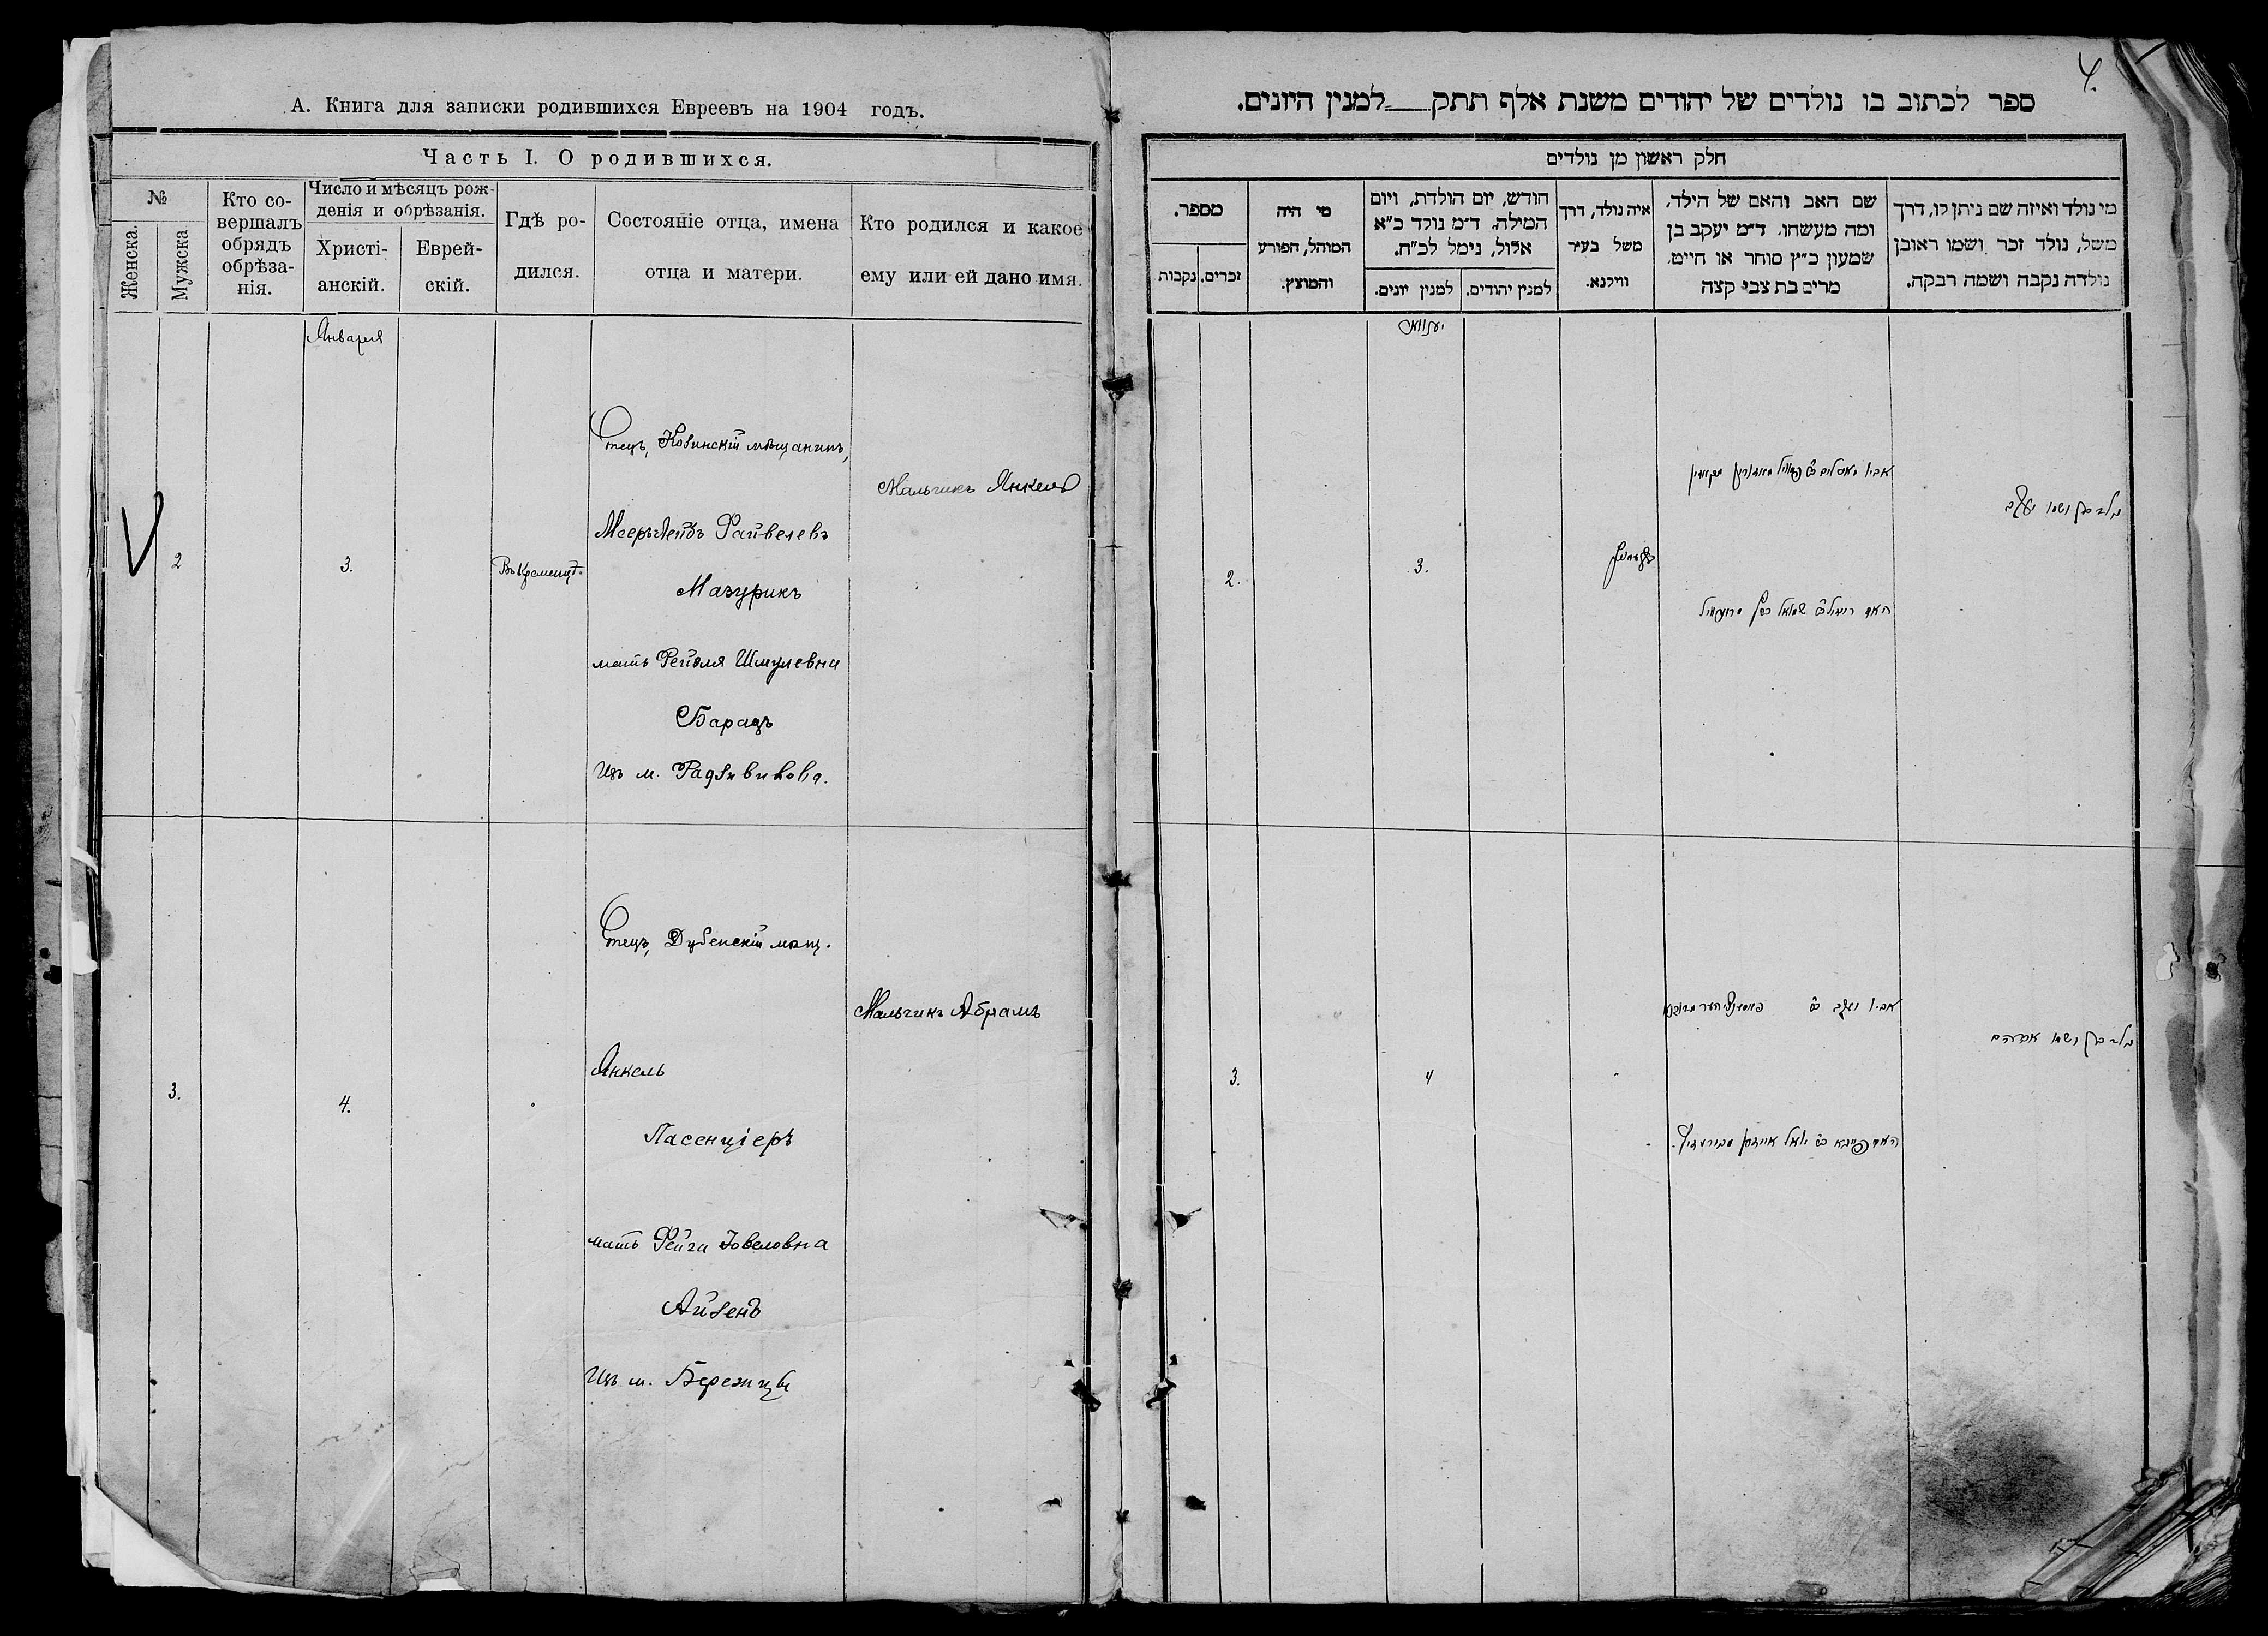 А. Книга для записки родившихся Евреевъ на 1904 годъ.
Часть I. О родившихся.
№
Женска.
Мужска
Кто со-
вершалъ
обрядъ
обрѣза-
нія.
Число и мѣсяцъ рож-
денія и обрѣзанія.
Христі-
анскій.
Еврей-
скій.
Гдѣ ро-
дился.
Состояніе отца, имена
отца и матери.
Кто родился и какое
ему или ей дано имя.
Января
2
3.
Въ Кременцѣ
Отецъ, Козинскій мѣщанинъ,
Мееръ Лейбъ Файвелевъ
Мазурикъ
мать Рейзля Шмулевна
Барацъ
Изъ м. Радзивилова.
Мальчикъ Янкель
3.
4.
Отецъ, Дубенскій мѣщ.
Янкель
Пасенціеръ
мать Фейга Іовеловна
Айзенъ
Изъ м. Бережцы
Мальчикъ Абрамъ
4.
ספר לכתוב בו נולדים של יהודים משנת אלף תתק למנין היונים.
חלק ראשון מן נולדים
מי נולד ואיזה שם ניתן לו, דרך
משל, נולד זכר ושמו ראובן
נולדה נקבה ושמה רבקה.
שם האב והאם של הילד,
ומה מעשהו, ד״מ יעקב בן
שמעון כ״ץ סוחר או חייט,
מרים בת צבי קצה
איה נולד, דרך
משל בעיר
ווילנא.
חודש, יום הולדת, ויום
המילה, ד״מ נולד כ״א
אלול, נימל לכ״ח.
למנין יהודים.
למנין יונים.
מי היה
המוהל, הפורע
והמוצץ.
מספר.
זכרים.
נקבות
יענוואר
נולד בן ושמו יעקב
3.
2.
נולד בן ושמו אברהם
4
3.